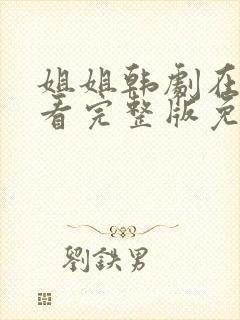 姐姐韩剧在
看完整版免
劉鉄男